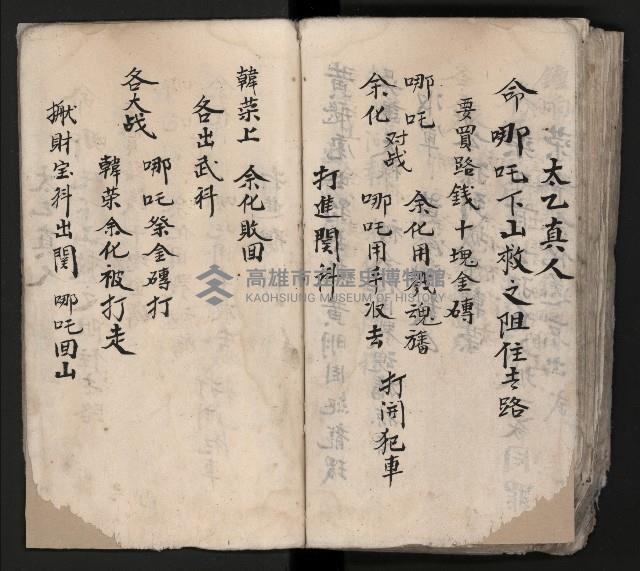 太乙真人
命哪吒下山救之阻住去路
要買路錢十塊金磚
哪吒对战 余化用戮魂旛
余化 哪吒用手收去 打開犯車
打進関科
韓荣上 余化敗回
各出武科
各大战 哪吒祭金磚打
韓荣余化被打走
揪財宝科出関 哪吒回山
高雄市立歷史博物館
KAOHSIUNG MUSEUM OF HISTORY